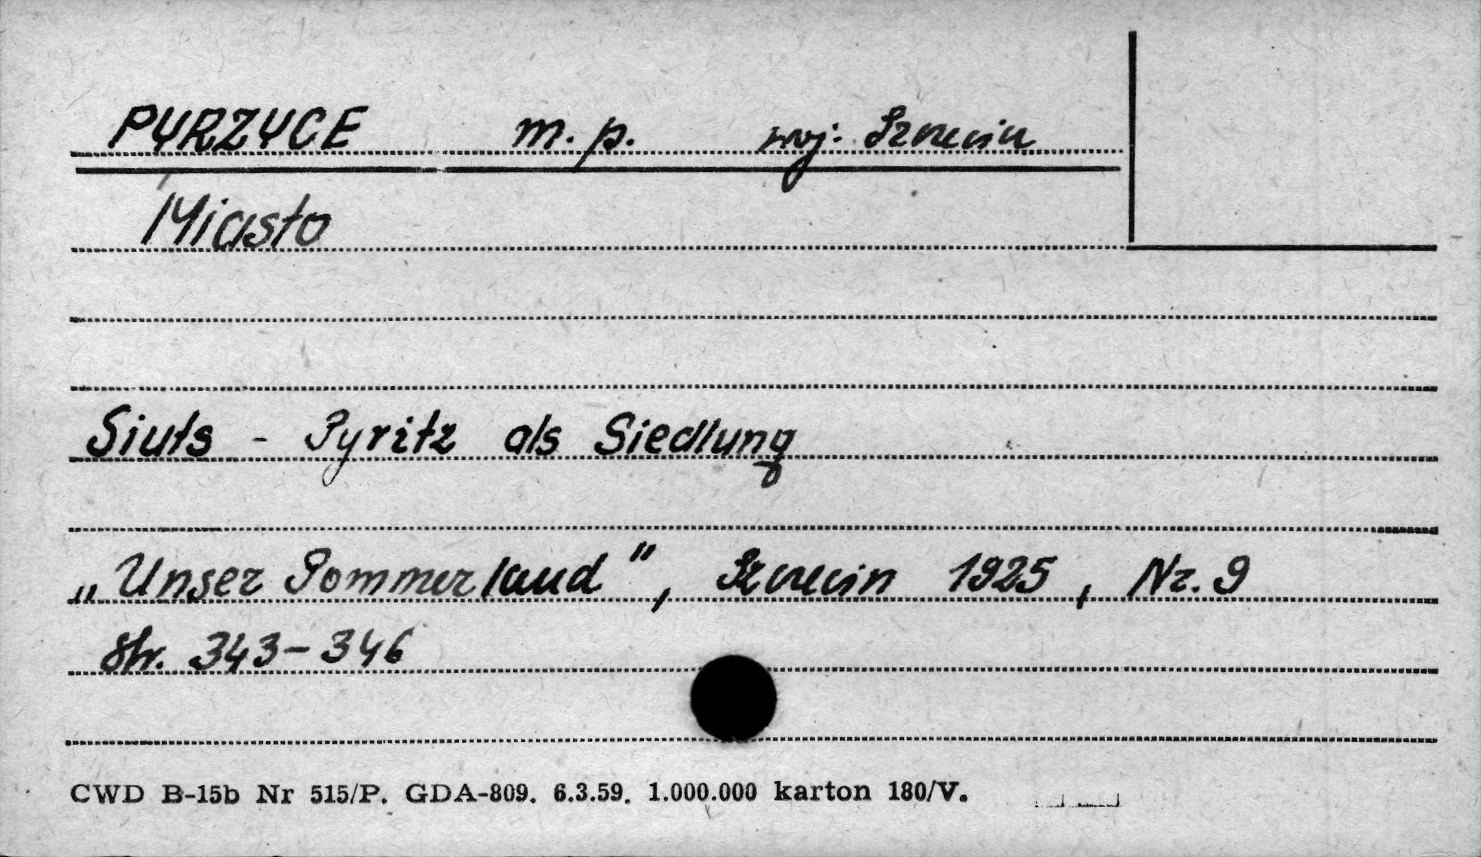 PYRZYCE m. p. woj. Szczecin
Miasto
Siuts - Pyritz als Siedlung
„Unser Pommerland”, Szczecin 1925, Nr. 9
str. 343-346
CWD B-15b Nr 515/P. GDA-809. 6.3.59. 1.000.000 karton 180/V.